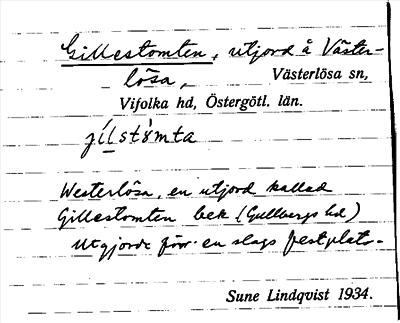 Gillestomten, utjord å Väster-
lösa, Västerlösa sn,
Vifolka hd, Östergötl. län.
jíl̲stòmta
Westerlösa, en utjord kallad
Gillestomten bek (Gullbergs hd)
Utgjorde förr en slags festplats.
Sune Lindqvist 1934.